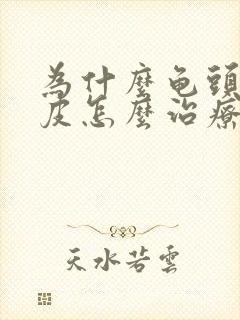 為什麼龜頭
皮怎麼治療
天水若雲